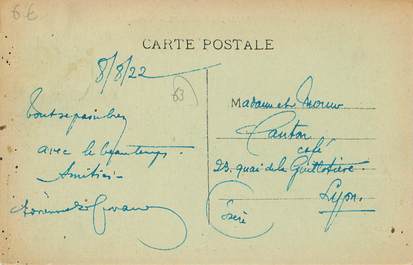 6€
CARTE POSTALE
8/8/22
63
Tout se passe bien
avec le beau temps.
Amitiés
Madame et Monsieur
Canton
café
23. quai de la Guillotière
Lyon.
Isère